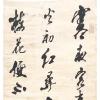 寒夜客
火初紅尋
梅花便不